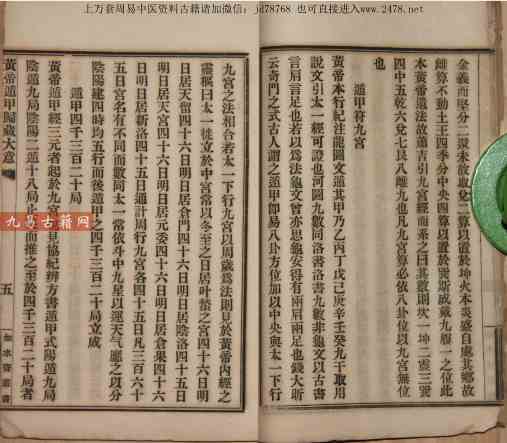 上万套周易中医资料古籍请加微信：jd78768 也可直接进入www.2478.net
金義而坚分二算未故取兌二算以置於坤火本炎盛自處其鄉故
算不動土王四季分中央四算以置於巽斯成戴九履一之位此
本黄帝遁法故蕭吉引九宮經而系之曰其數則坎一坤二震三巽
四中五乾六兌七艮八離九也凡九宮算必依八卦位以九宮無位
也
遁甲符九宮
黄帝本行紀注龍圖文遁其甲乃乙丙丁戊己庚辛壬癸九干取用
說文引太一經可證也河圖九數即洛書洛書九數非龜文以古書
言肩言足也若以為法龜文曾亦思龜安得有兩肩兩足也錢大昕
云奇門之式古人謂之遁甲即易八卦方位加以中央與太一下行
九宮之法相合若太一下行九宮以周歲為法則見於黄帝内經之
靈樞曰太一徙立於中宮常以冬至之日居叶蟄之宮四十六日明
日居天留四十六日明日居倉門四十六日明日居陰洛四十五日
明日居天宮四十六日明日居元委四十六日明日居倉果四十六
日明日居新洛四十五日通計周行九宮各四十五日凡三百六十
五日宮名有不同而數同太一常依斗中九星以運天氣應之以分
陰陽建四時均五行而後遁甲之四千三百二十局立成
遁甲四千三百二十局
黄帝遁甲經三元者起於九宮見協紀辨方書遁甲式陽遁九局
陰遁九局陰陽二遁十八局而推之至於四千三百二十局者
黄帝遁甲歸藏大意
五
九易古籍网